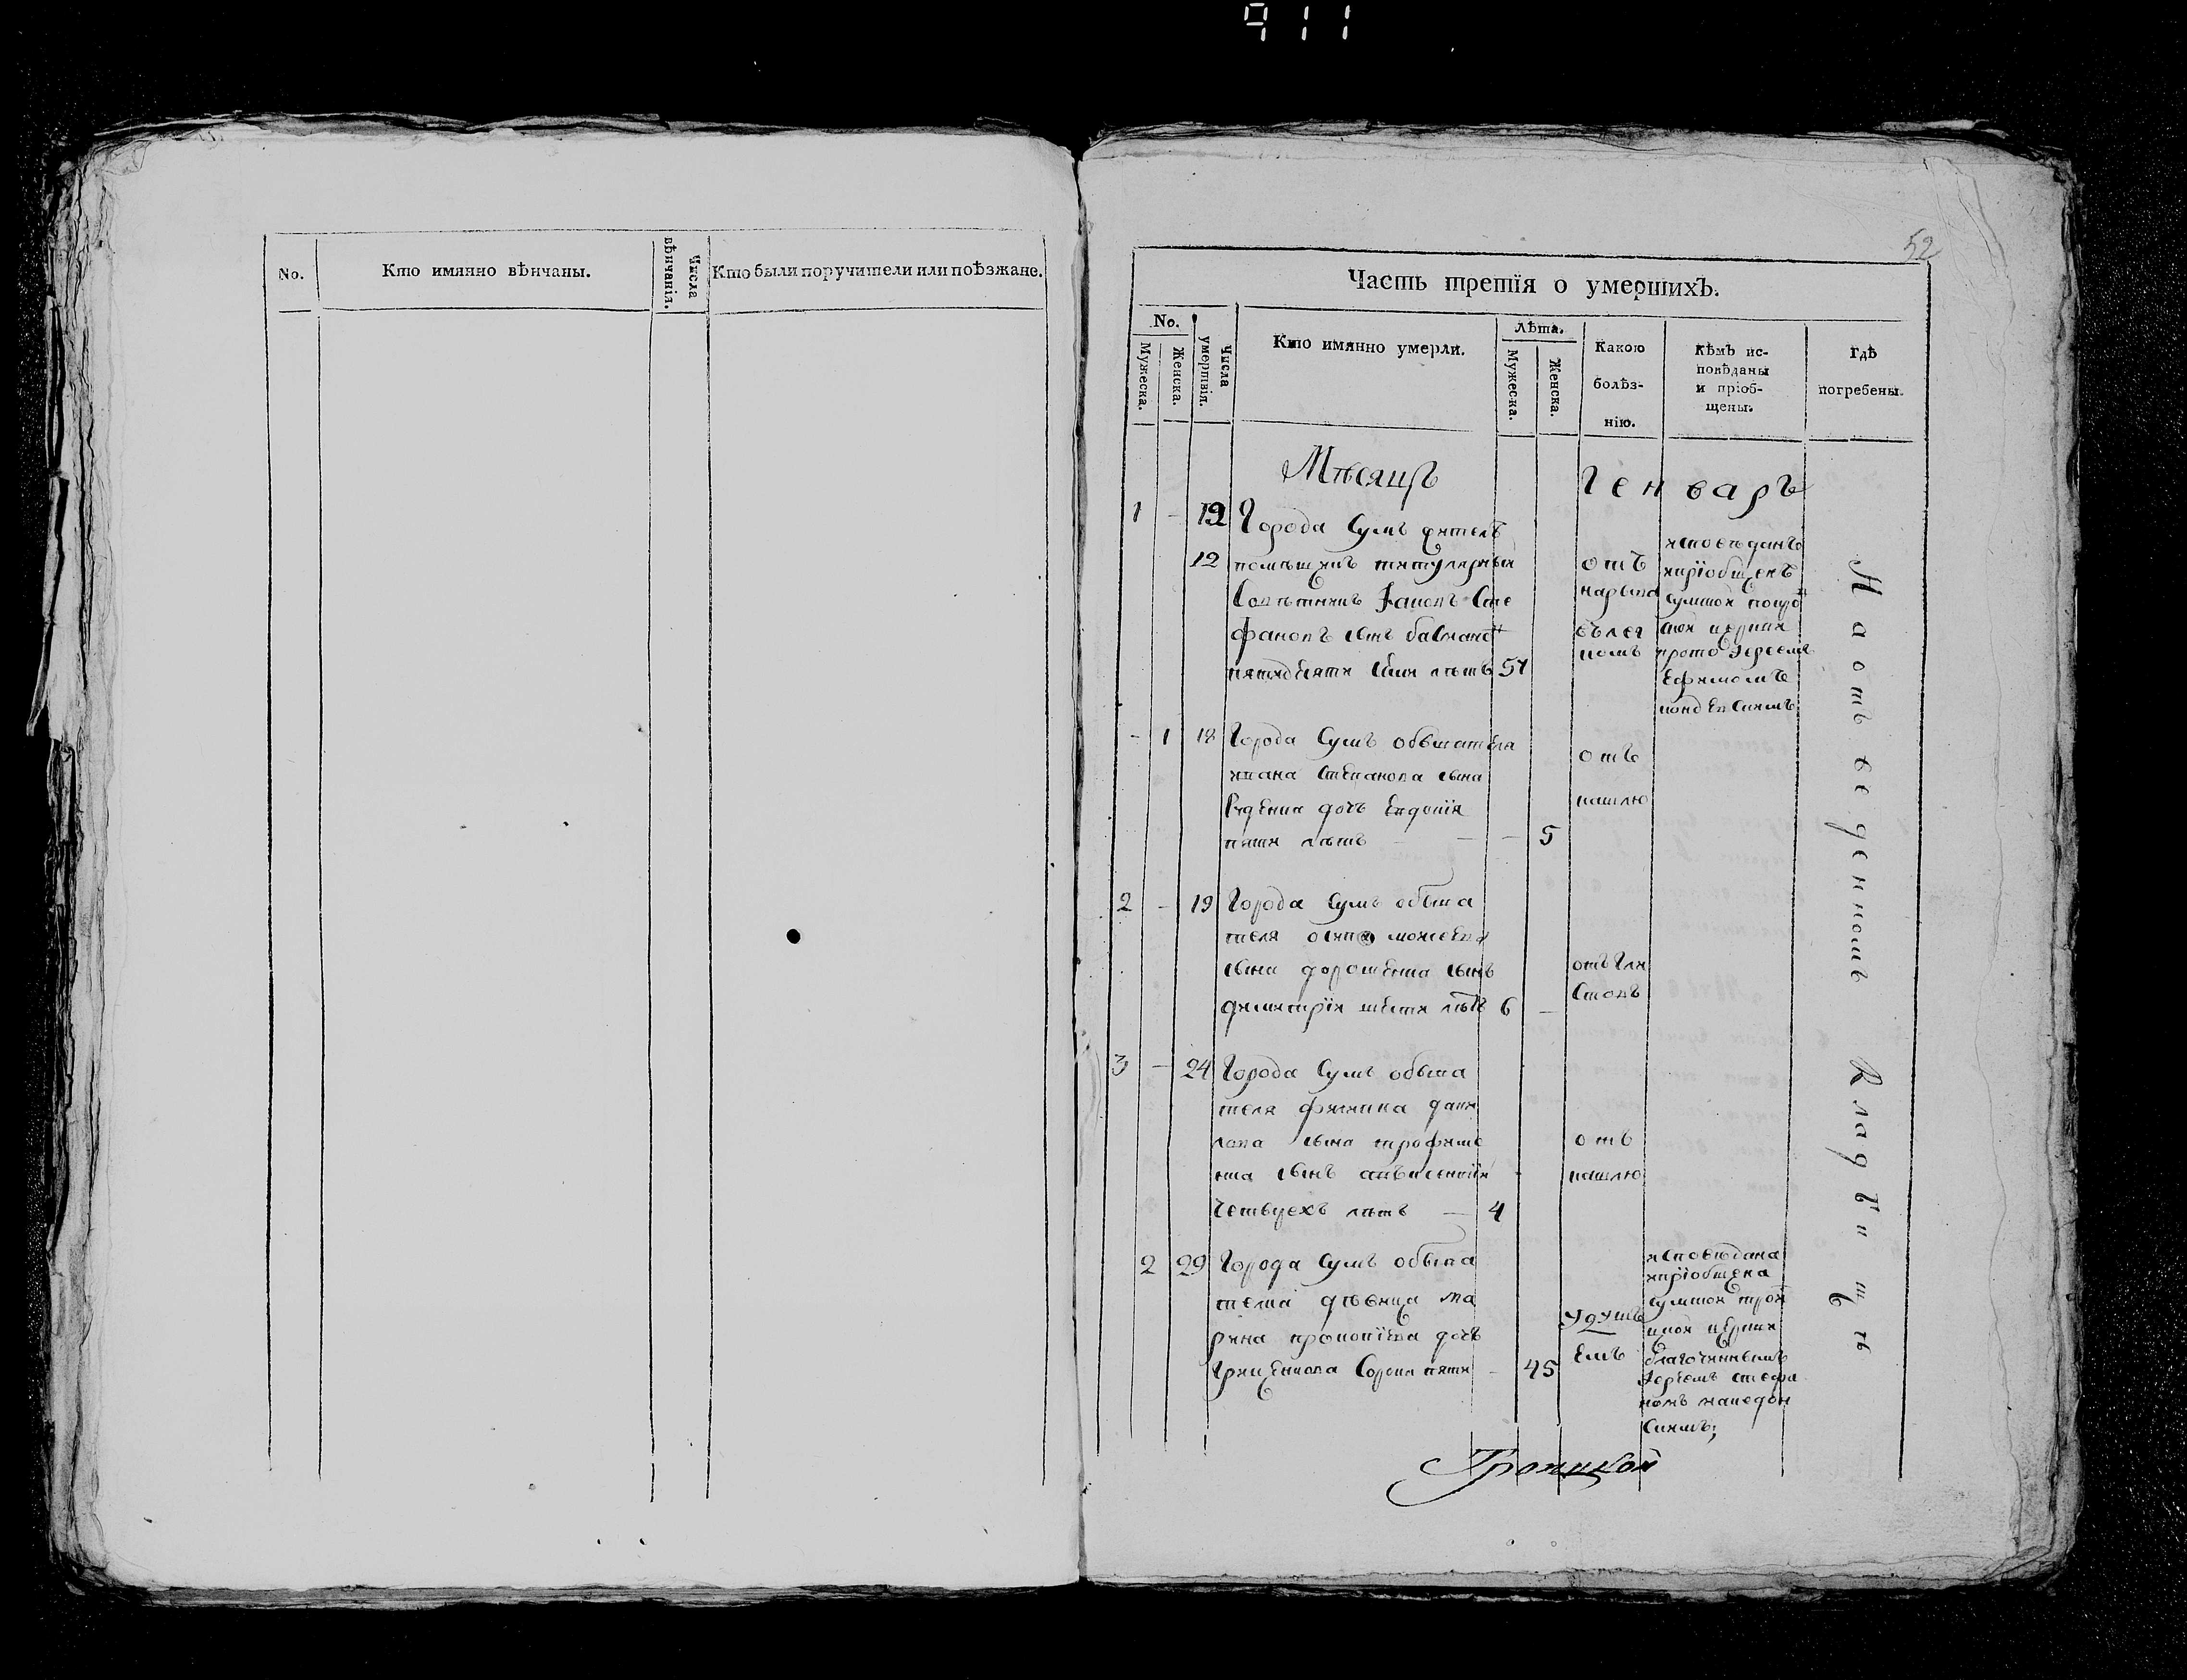 911
No.
Кто имянно вѣнчаны.
Числа
вѣнчанія.
Кто были поручители или поѣзжане.
52
Часть третія о умершихъ.
No.
Мужеска.
Женска.
Числа
умертвія.
Кто имянно умерли.
лѣта.
Мужеска.
Женска.
Какою
болѣз-
нію.
кѣмъ ис-
повѣданы
и пріоб-
щены.
гдѣ
погребены.
Мѣсяцъ
Генваръ
1 - 12 Города Сумъ
12 помѣщикъ титулярный
Совѣтникъ Сте
фановъ сынъ
пятидесяти лѣтъ 51
отъ
нарыва
исповѣданъ
ипріобщенъ
сумской
церкви
прото Іереемъ
- 1 18 Города Сумъ обывателя
ивана степанова сына
дочь Евдокія
пяти лѣтъ - - 5
отъ
кашлю
2 - 19 Города Сумъ обыва
теля осипа моисеева
сына дорошенка сынъ
димитрій шести лѣтъ 6 -
отъ Гли
стовъ
3 - 24 Города Сумъ обыва
теля дани
лова сына трофиме
нка сынъ
Четырехъ лѣтъ - 4
отъ
кашлю
2 29 Города Сумъ обыва
телка дѣвица ма
рина прокопіева дочь
Гриценкова Сорокъ пяти - 45
Удушь
Емъ
исповѣдана
ипріобщена
сумской трои
цкой церкви
благочиннымъ
Іереемъ стефа
номъ македон
скимъ;
На отъведенномъ Кладбищѣ
Троицкой